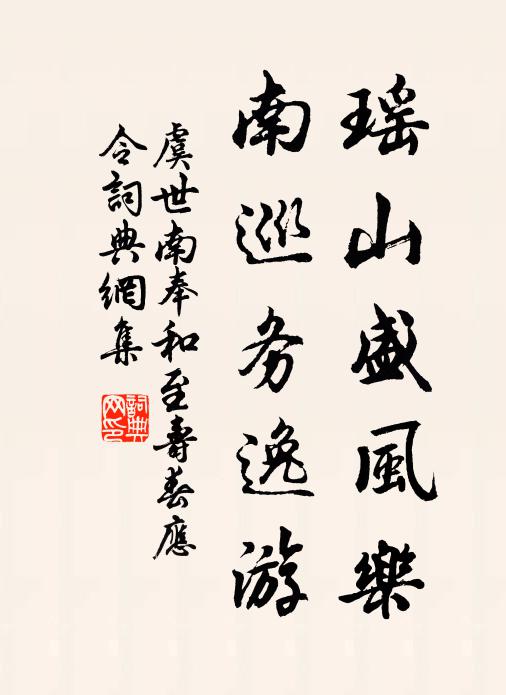 瑶山盛風樂
南巡务逸游
虞世南奉和至壽春應
令詞典網集
詞典
网印